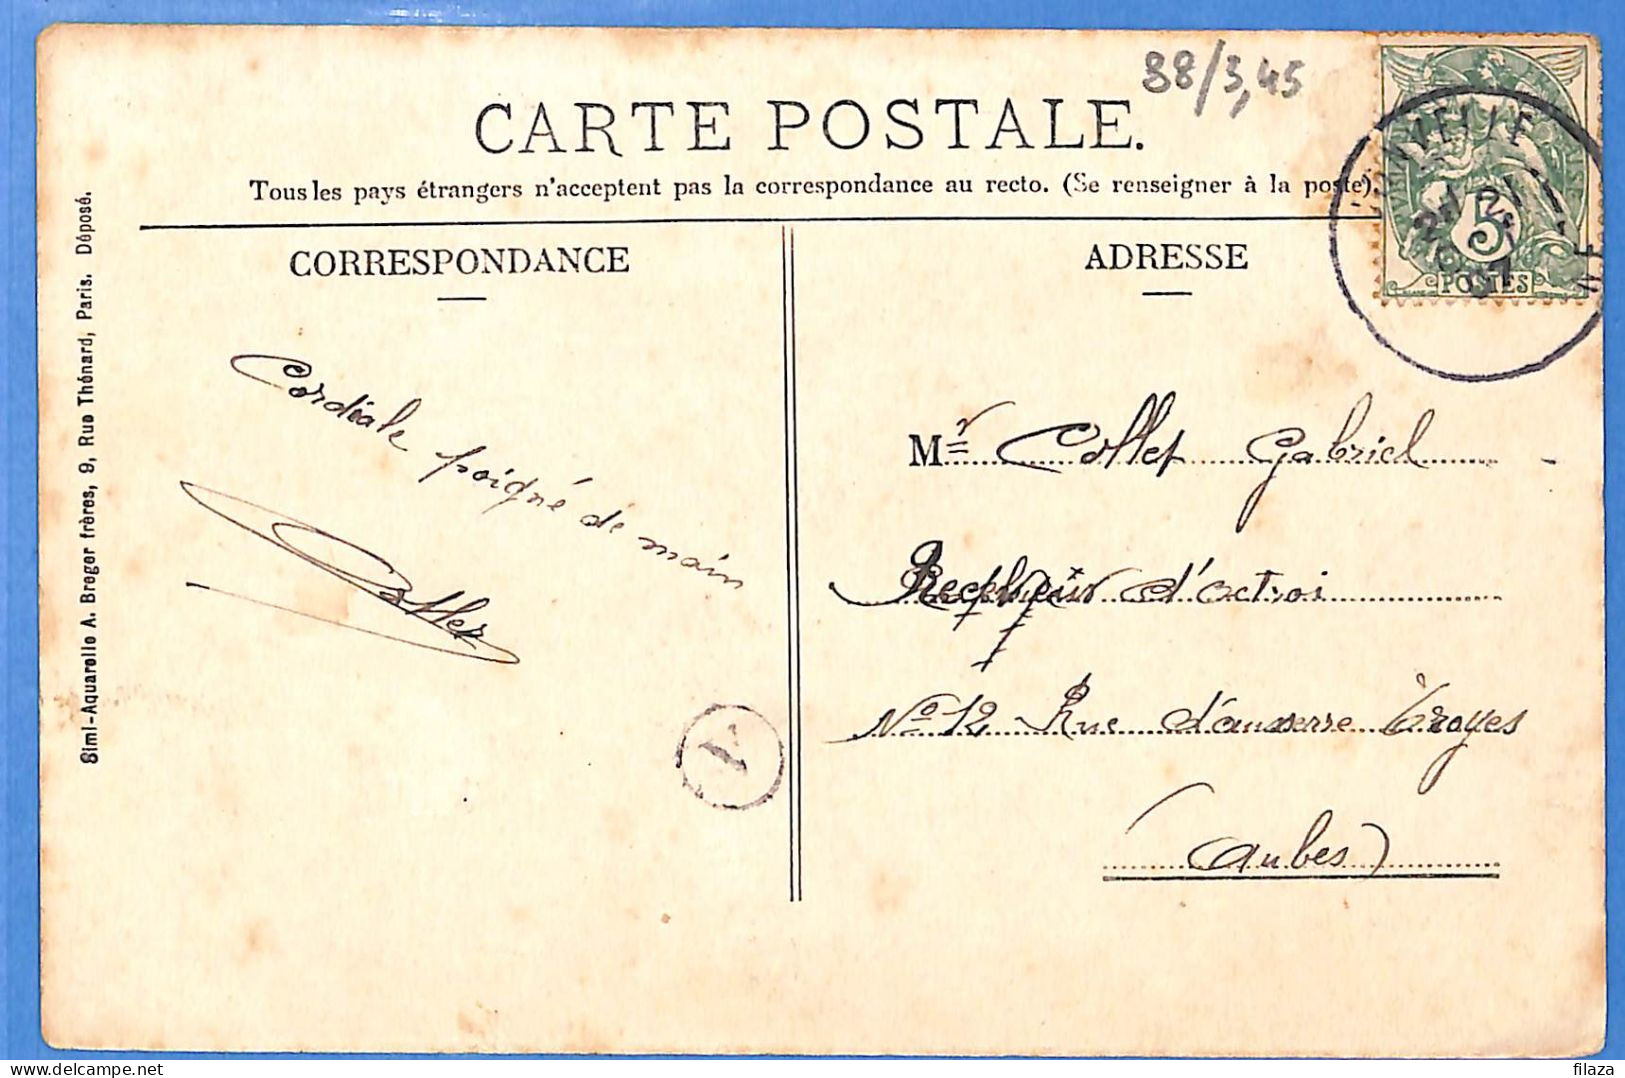 88/3,45
CARTE POSTALE.
Tous les pays étrangers n'acceptent pas la correspondance au recto. (Se renseigner à la poste).
5
POSTES
CORRESPONDANCE
ADRESSE
Cordiale poigné de main
Mr Collet Gabriel
Recepveur d'octroi
No 12 Rue d'auxerre Troyes
(Aubes)
Simi-Aquarelle A. Breger frères, 9, Rue Thénard, Paris. Déposé.
filaza